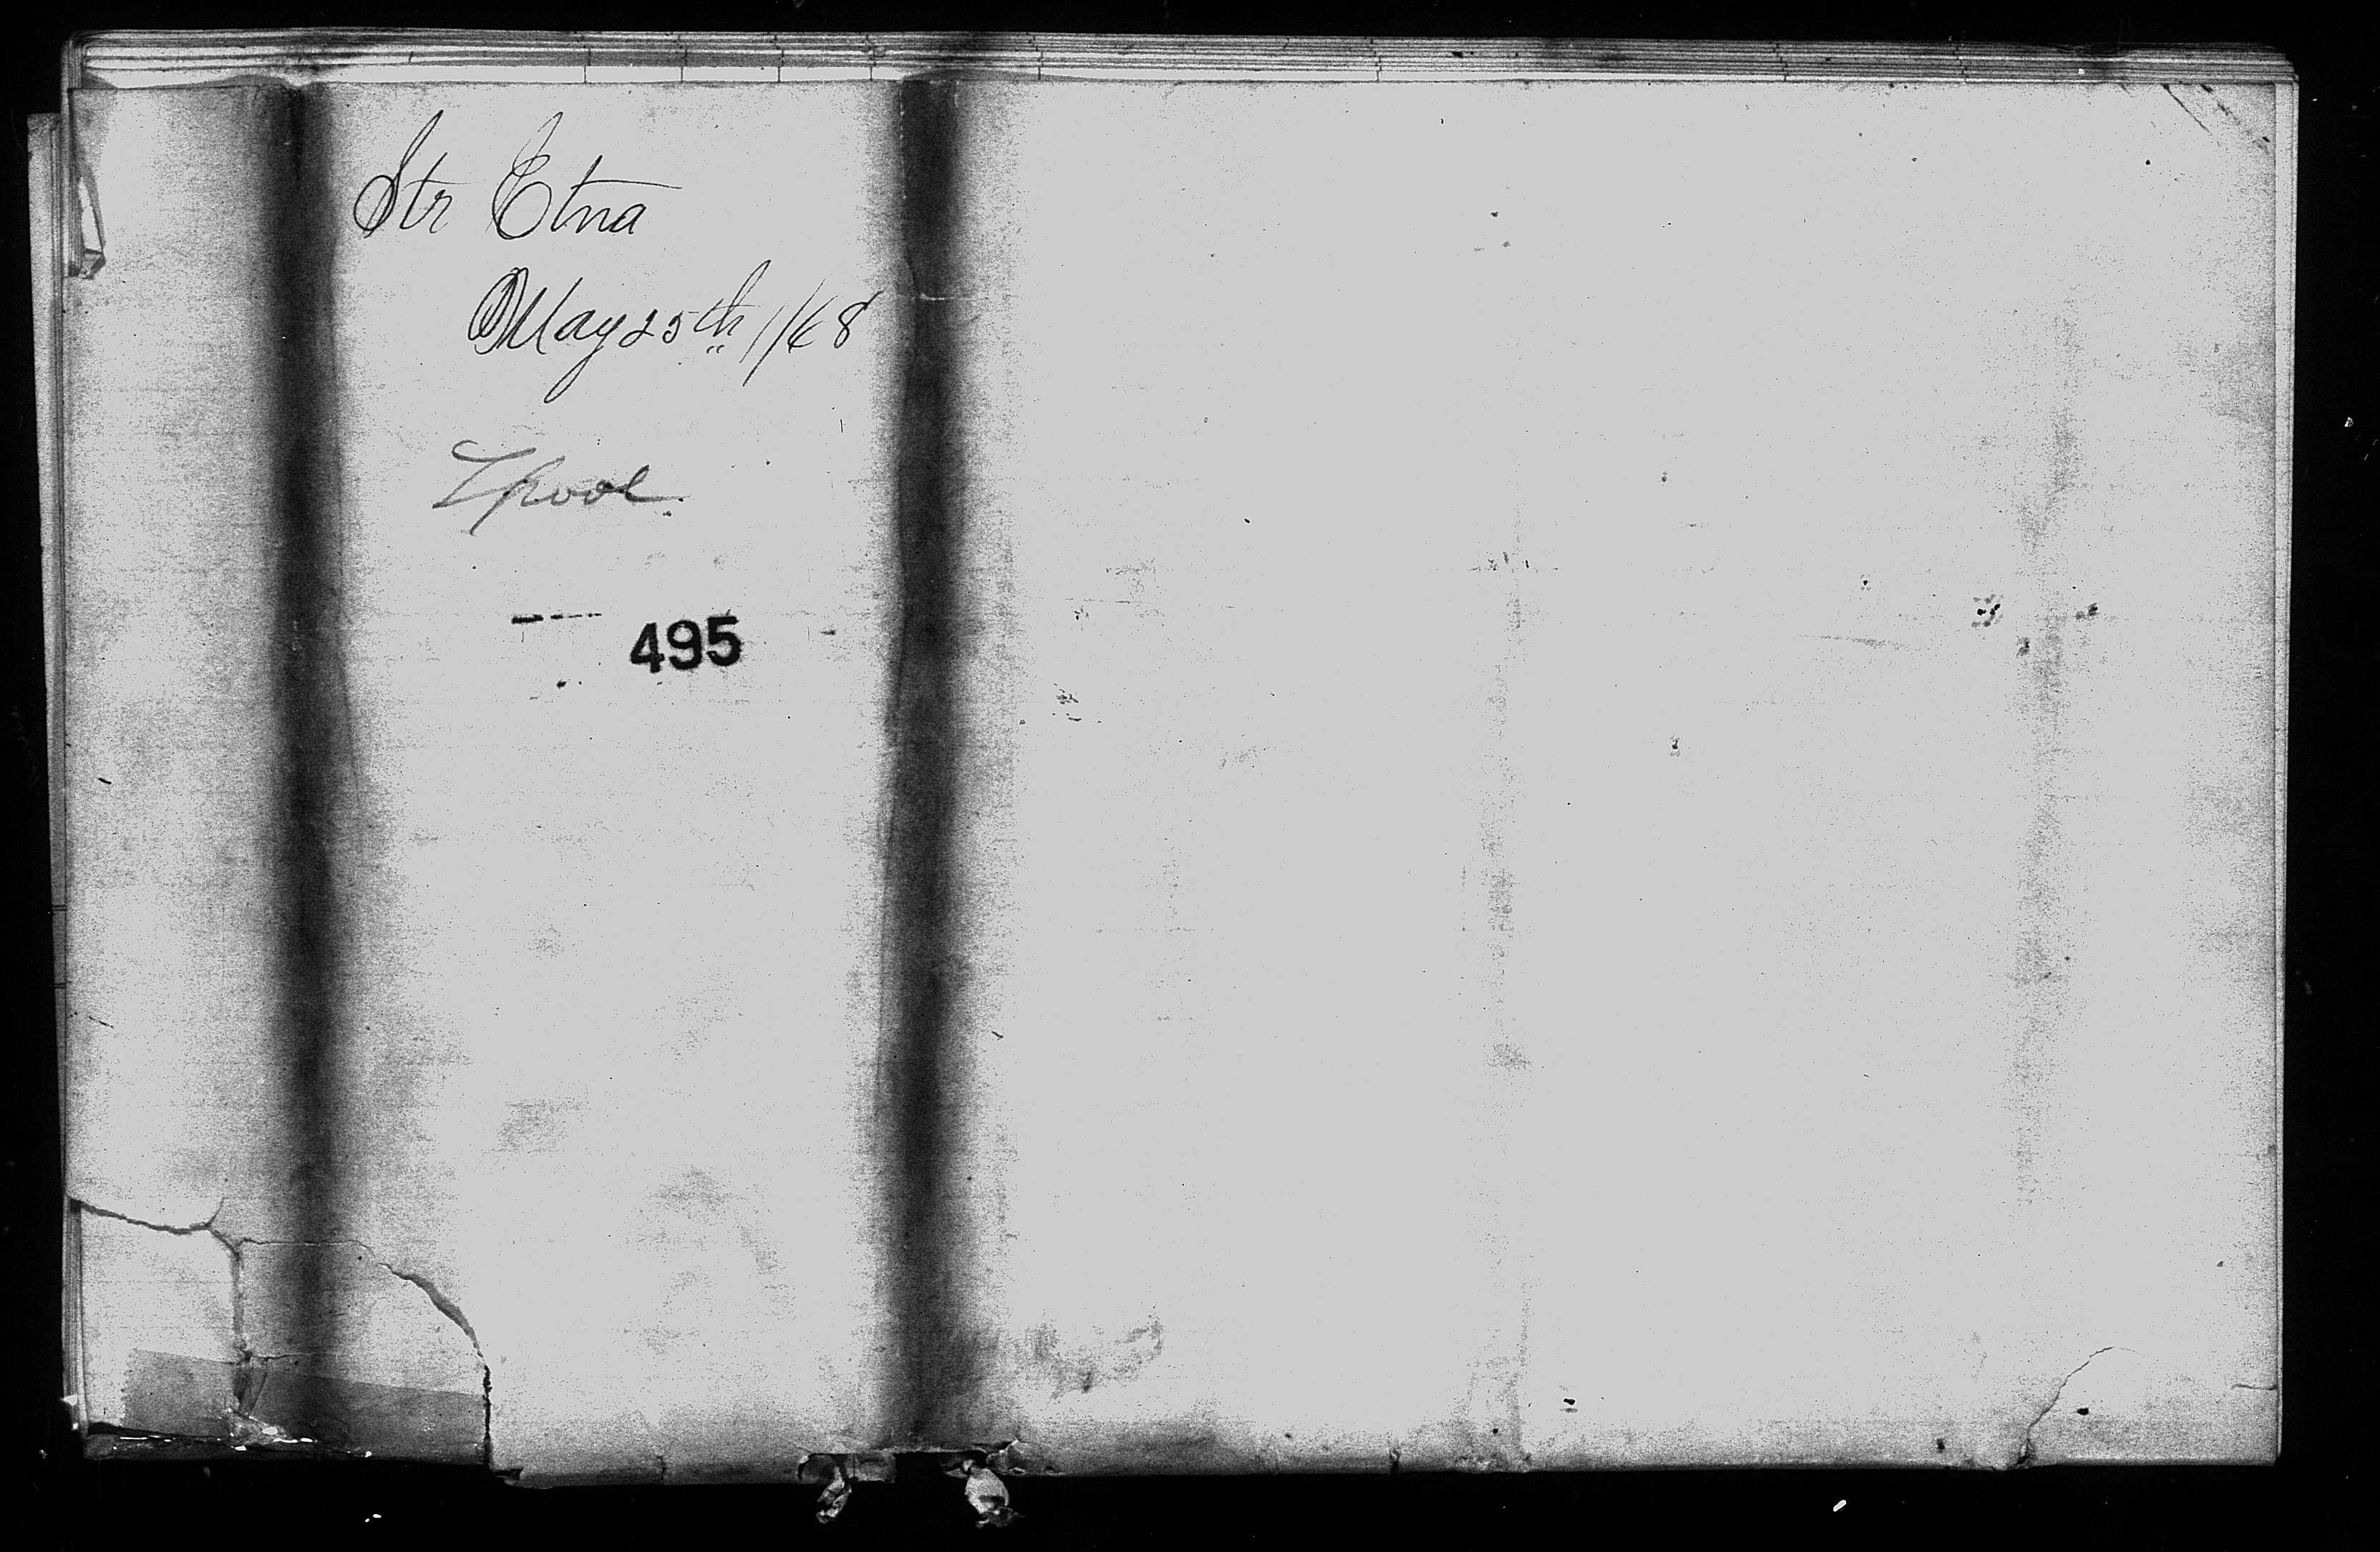 Str Etna
May 25th //68
Lpool.
495